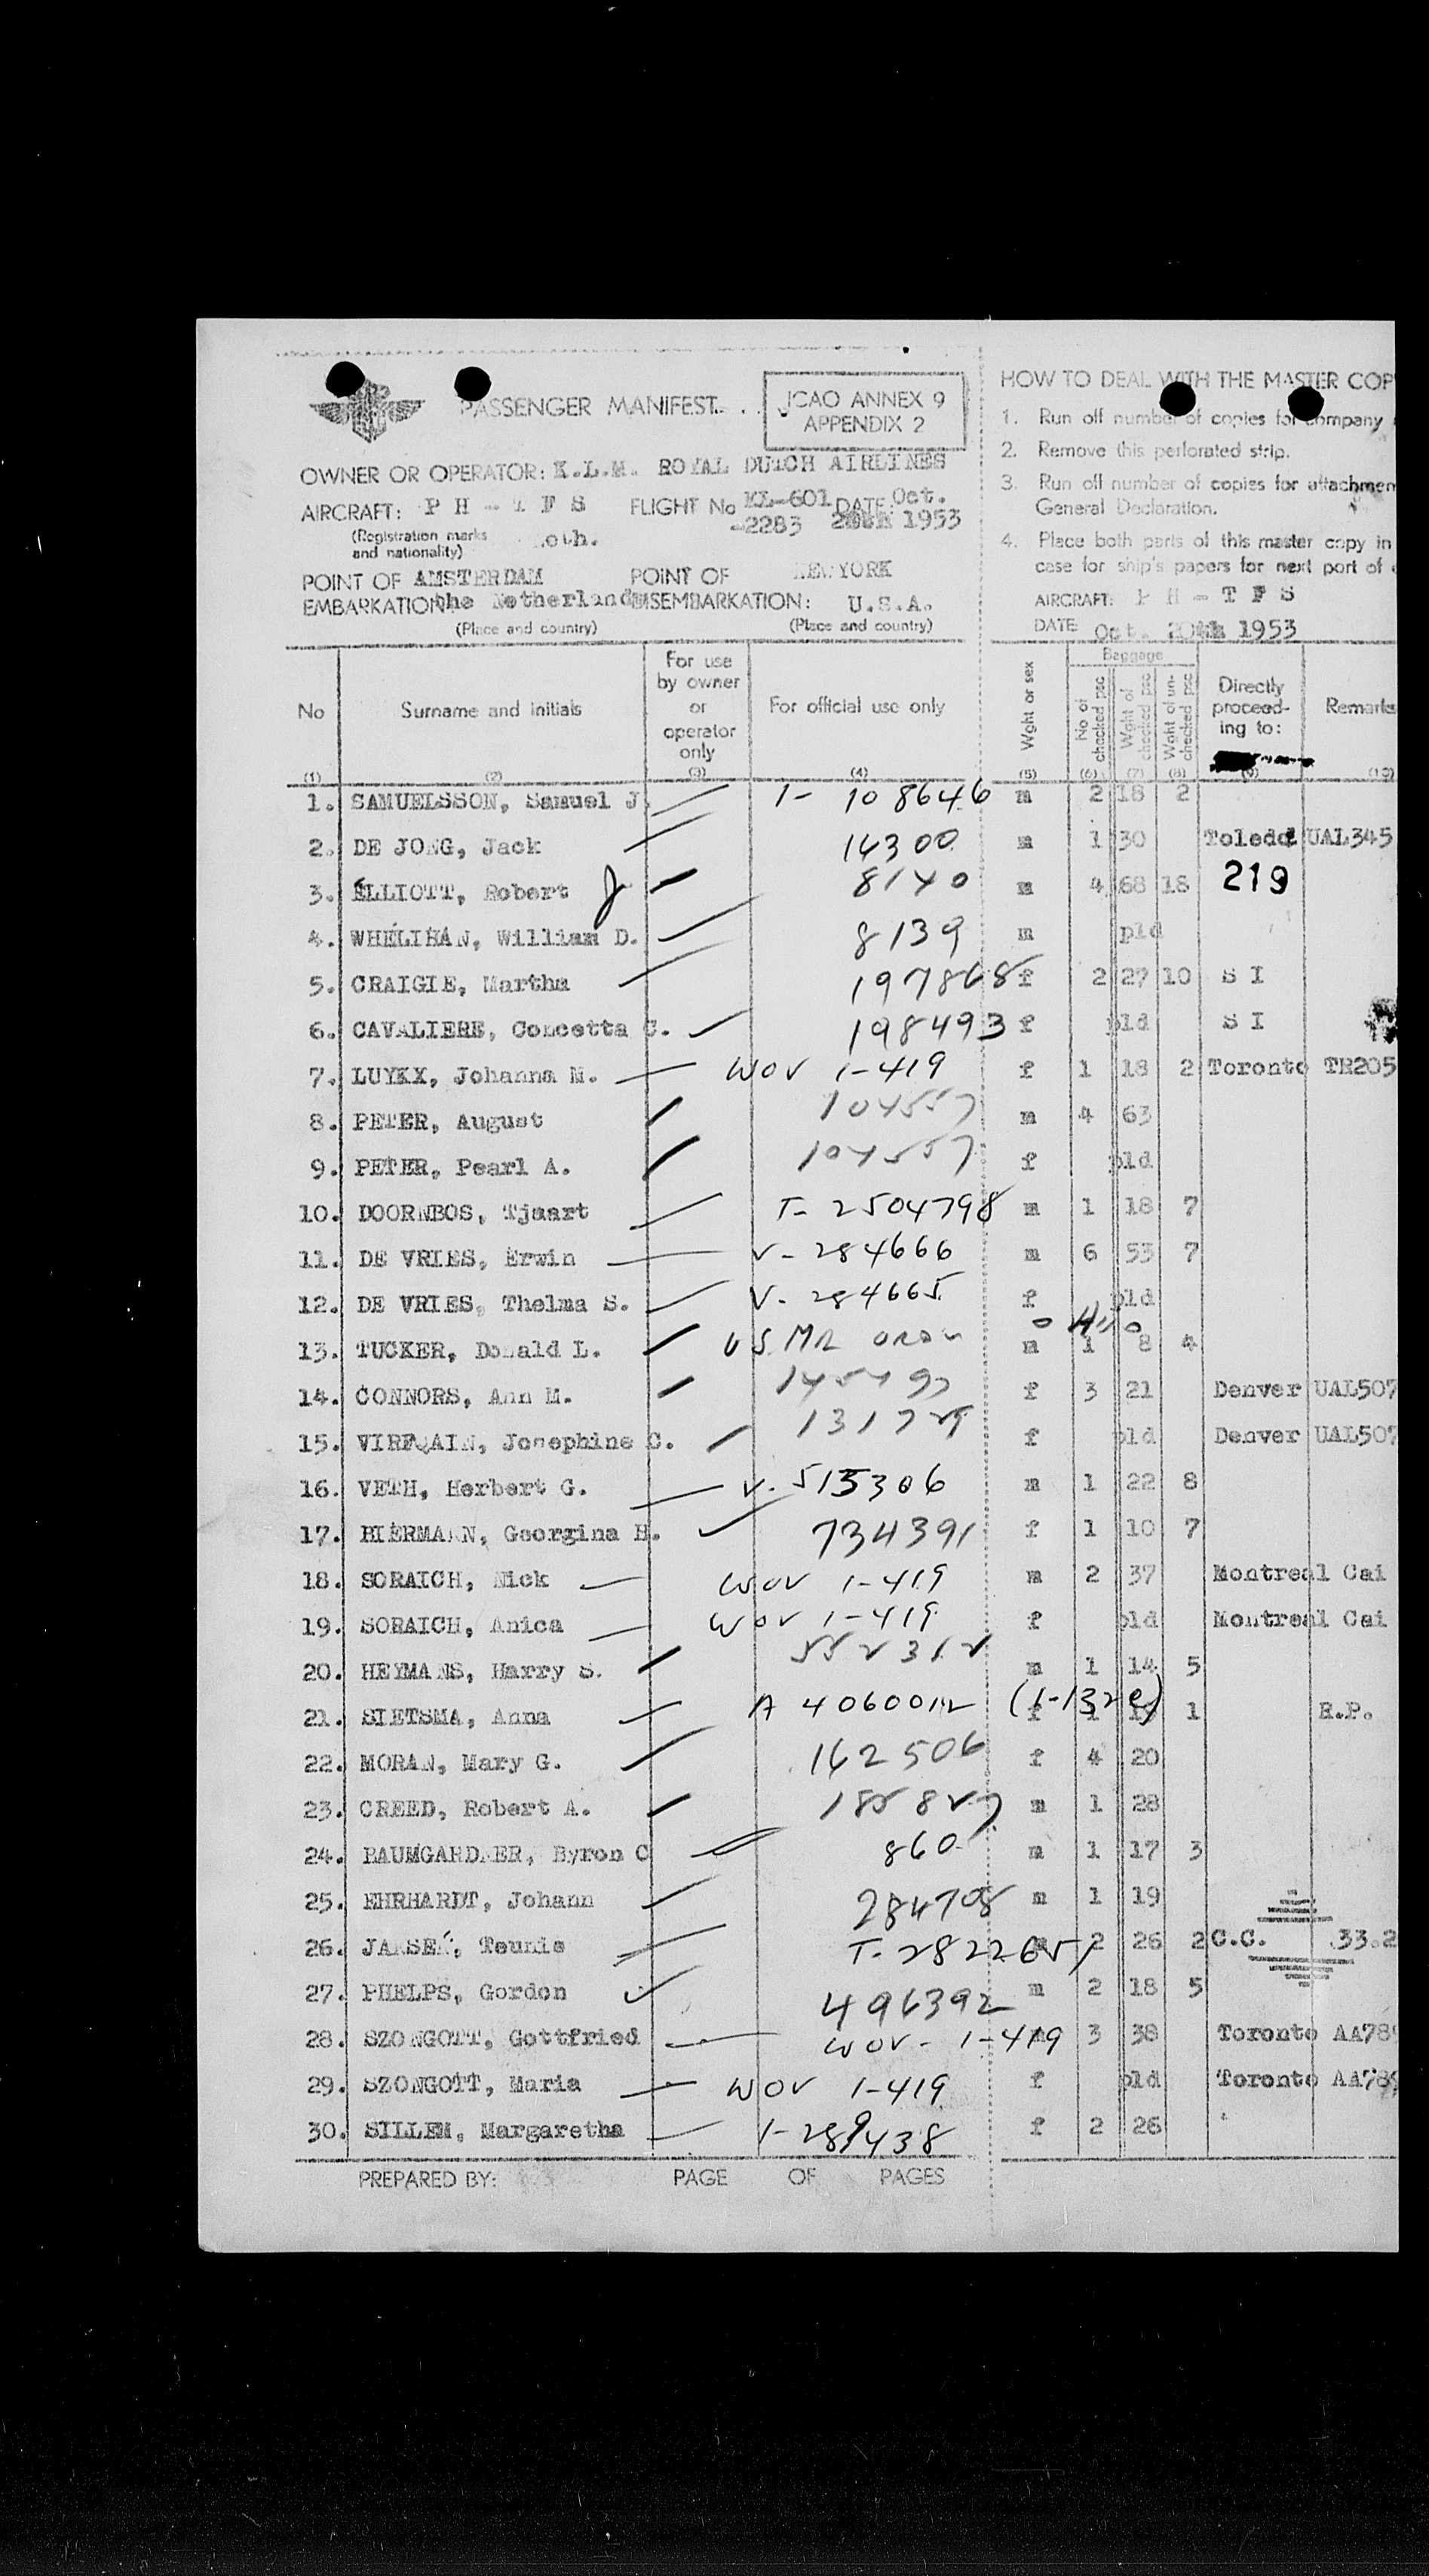 PASSENGER MANIFEST
ICAO ANNEX 9
APPENDIX 2
OWNER OR OPERATOR: K.L.M. ROYAL DUTCH AIRLINES
AIRCRAFT: P H - T F S FLIGHT No KL-601 DATE: Oct.
-2283 1953
(Registration marks
and nationality)
POINT OF AMSTERDAM POINT OF NEW YORK
EMBARKATION: the Netherlands DISEMBARKATION: U.S.A.
(Place and country) (Place and country)
HOW TO DEAL WITH THE MASTER COP
1. Run off number of copies for company
2. Remove this perforated strip.
3. Run off number of copies for attachmen
General Declaration.
4. Place both parts of this master copy in
case for ship's papers for next port of
AIRCRAFT: P H - T F S
DATE Oct. 20th 1953
No Surname and initials For use by owner or operator only For official use only Wght or sex Baggage No of checked psc Wght of checked psc Wght of un-checked psc Directly proceed-ing to: Remarks
(1) (2) (3) (4) (5) (6) (7) (8) (9) (10)
1. SAMUELSSON, Samuel J. 1- 108646 m 2 18 2
2. DE JONG, Jack 14300 m 1 30 Toledo UAL345
3. ELLIOTT, Robert J 8140 m 4 68 18 219
4. WHELIHAN, William D. 8139 m pld
5. CRAIGIE, Martha 197868 f 2 27 10 S I
6. CAVALIERE, Concetta C. 198493 f pld S I
7. LUYKX, Johanna M. WOV 1-419 f 1 18 2 Toronto TR205
8. PETER, August 104557 m 4 63
9. PETER, Pearl A. 104557 f pld
10. DOORNBOS, Tjaart T- 2504798 m 1 18 7
11. DE VRIES, Erwin V- 284666 m 6 53 7
12. DE VRIES, Thelma S. V- 284665 f pld
13. TUCKER, Donald L. US m 1 8 4
14. CONNORS, Ann M. f 3 21 Denver UAL507
15. VIRFQAIN, Josephine C. 131729 f pld Denver UAL507
16. VETH, Herbert G. V- 515306 m 1 22 8
17. BIERMANN, Georgina H. 734391 f 1 10 7
18. SORAICH, Nick WOV 1-419 m 2 37 Montreal Cai
19. SORAICH, Anica WOV 1-419 f pld Montreal Cai
20. HEYMANS, Harry S. 552312 m 1 14 5
21. SIETSMA, Anna A 4060012 (1-132e) f 1 1 R.P.
22. MORAN, Mary G. 162506 f 4 20
23. CREED, Robert A. 185827 m 1 28
24. BAUMGARDNER, Byron C 860 m 1 17 3
25. EHRHARDT, Johann 284708 m 1 19
26. JANSEN, Teunis T- 2822651 2 26 2 C.C. 33.2
27. PHELPS, Gordon 496392 m 2 18 5
28. SZONGOTT, Gottfried WOV- 1-419 3 38 Toronto AA789
29. SZONGOTT, Maria WOV 1-419 f pld Toronto AA789
30. SILLEM, Margaretha 1-289438 f 2 26
PREPARED BY: PAGE OF PAGES